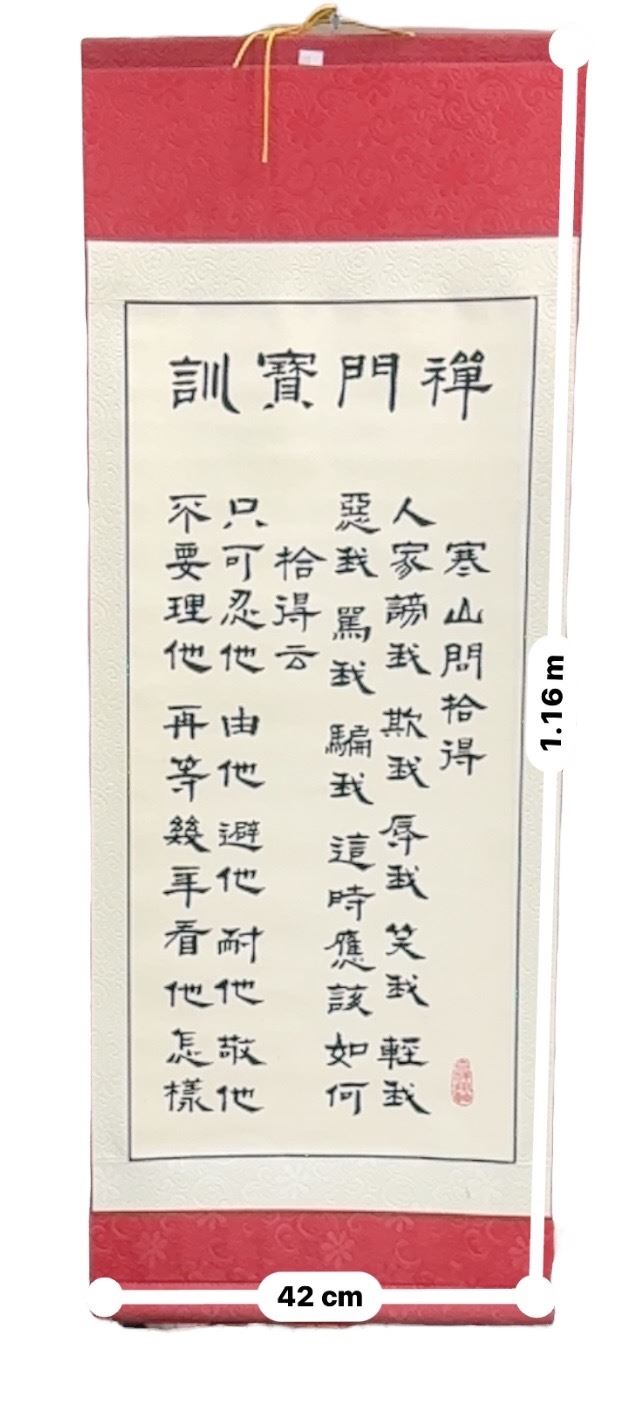 禪門寶訓
寒山問拾得
人家謗我 欺我 辱我 笑我 輕我
惡我 罵我 騙我 這時應該如何
拾得云
只可忍他 由他 避他 耐他 敬他
不要理他 再等幾年看他怎樣
1.16 m
42 cm